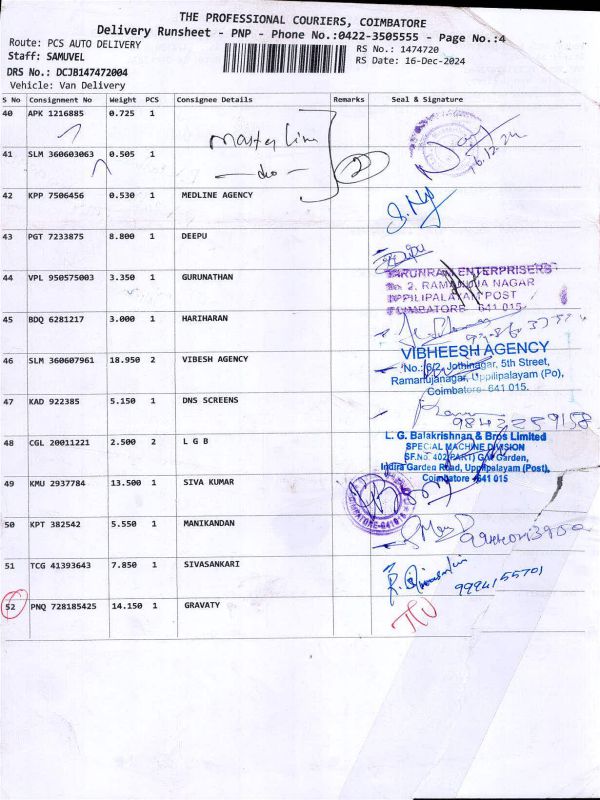 THE PROFESSIONAL COURIERS, COIMBATORE
Delivery Runsheet - PNP - Phone No.:0422-3505555 - Page No.:4
Route: PCS AUTO DELIVERY
RS No.: 1474720
Staff: SAMUVEL
RS Date: 16-Dec-2024
DRS No.: DCJB147472004
Vehicle: Van Delivery
S No Consignment No Weight PCS Consignee Details Remarks Seal & Signature
40 APK 1216885 0.725 1
16.12.24
41 SLM 360603063 0.505 1
2
42 KPP 7506456 0.530 1 MEDLINE AGENCY
43 PGT 7233875 8.800 1 DEEPU
44 VPL 950575003 3.350 1 GURUNATHAN
ENTERPRISERS
No 2, RAMANUJA NAGAR
UPPILIPALAYAM POST
COIMBATORE 641 015
45 BDQ 6281217 3.000 1 HARIHARAN
46 SLM 360607961 18.950 2 VIBESH AGENCY
VIBHEESH AGENCY
No.: 6/2, Jothinagar, 5th Street,
Ramanujanagar, Uppilipalayam (Po),
Coimbatore- 641 015.
47 KAD 922385 5.150 1 DNS SCREENS
48 CGL 20011221 2.500 2 L G B
L. G. Balakrishnan & Bros Limited
SPECIAL MACHINE DIVISION
SF.No. 402(PART) G.V Garden,
Indira Garden Road, Uppilipalayam (Post),
Coimbatore - 641 015
49 KMU 2937784 13.500 1 SIVA KUMAR
50 KPT 382542 5.550 1 MANIKANDAN
51 TCG 41393643 7.850 1 SIVASANKARI
9994155701
52 PNQ 728185425 14.150 1 GRAVATY